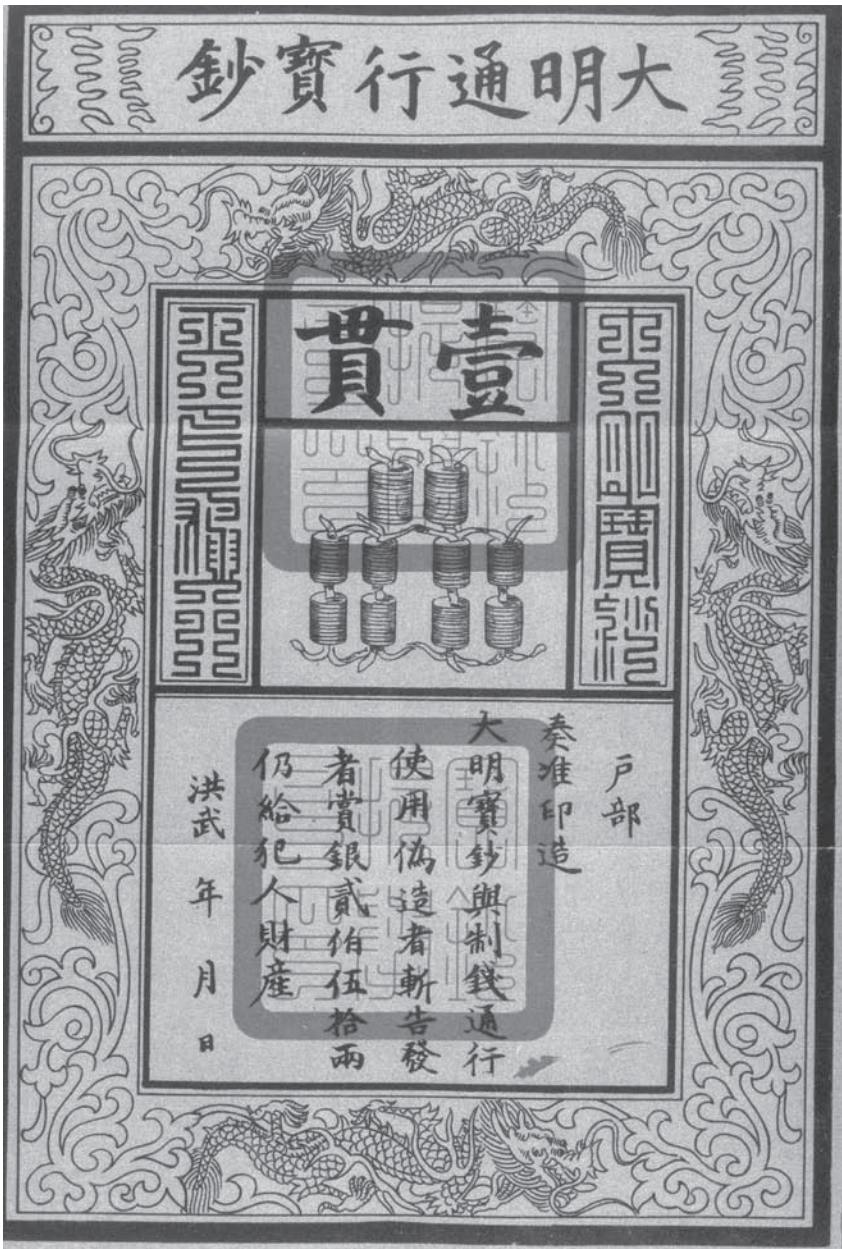 大明通行寶鈔
壹貫
大明寶鈔
天下通行
户部
奏准印造
大明寶鈔與制錢通行
使用偽造者斬告發
者賞銀貳伯伍拾兩
仍給犯人財產
洪武 年 月 日